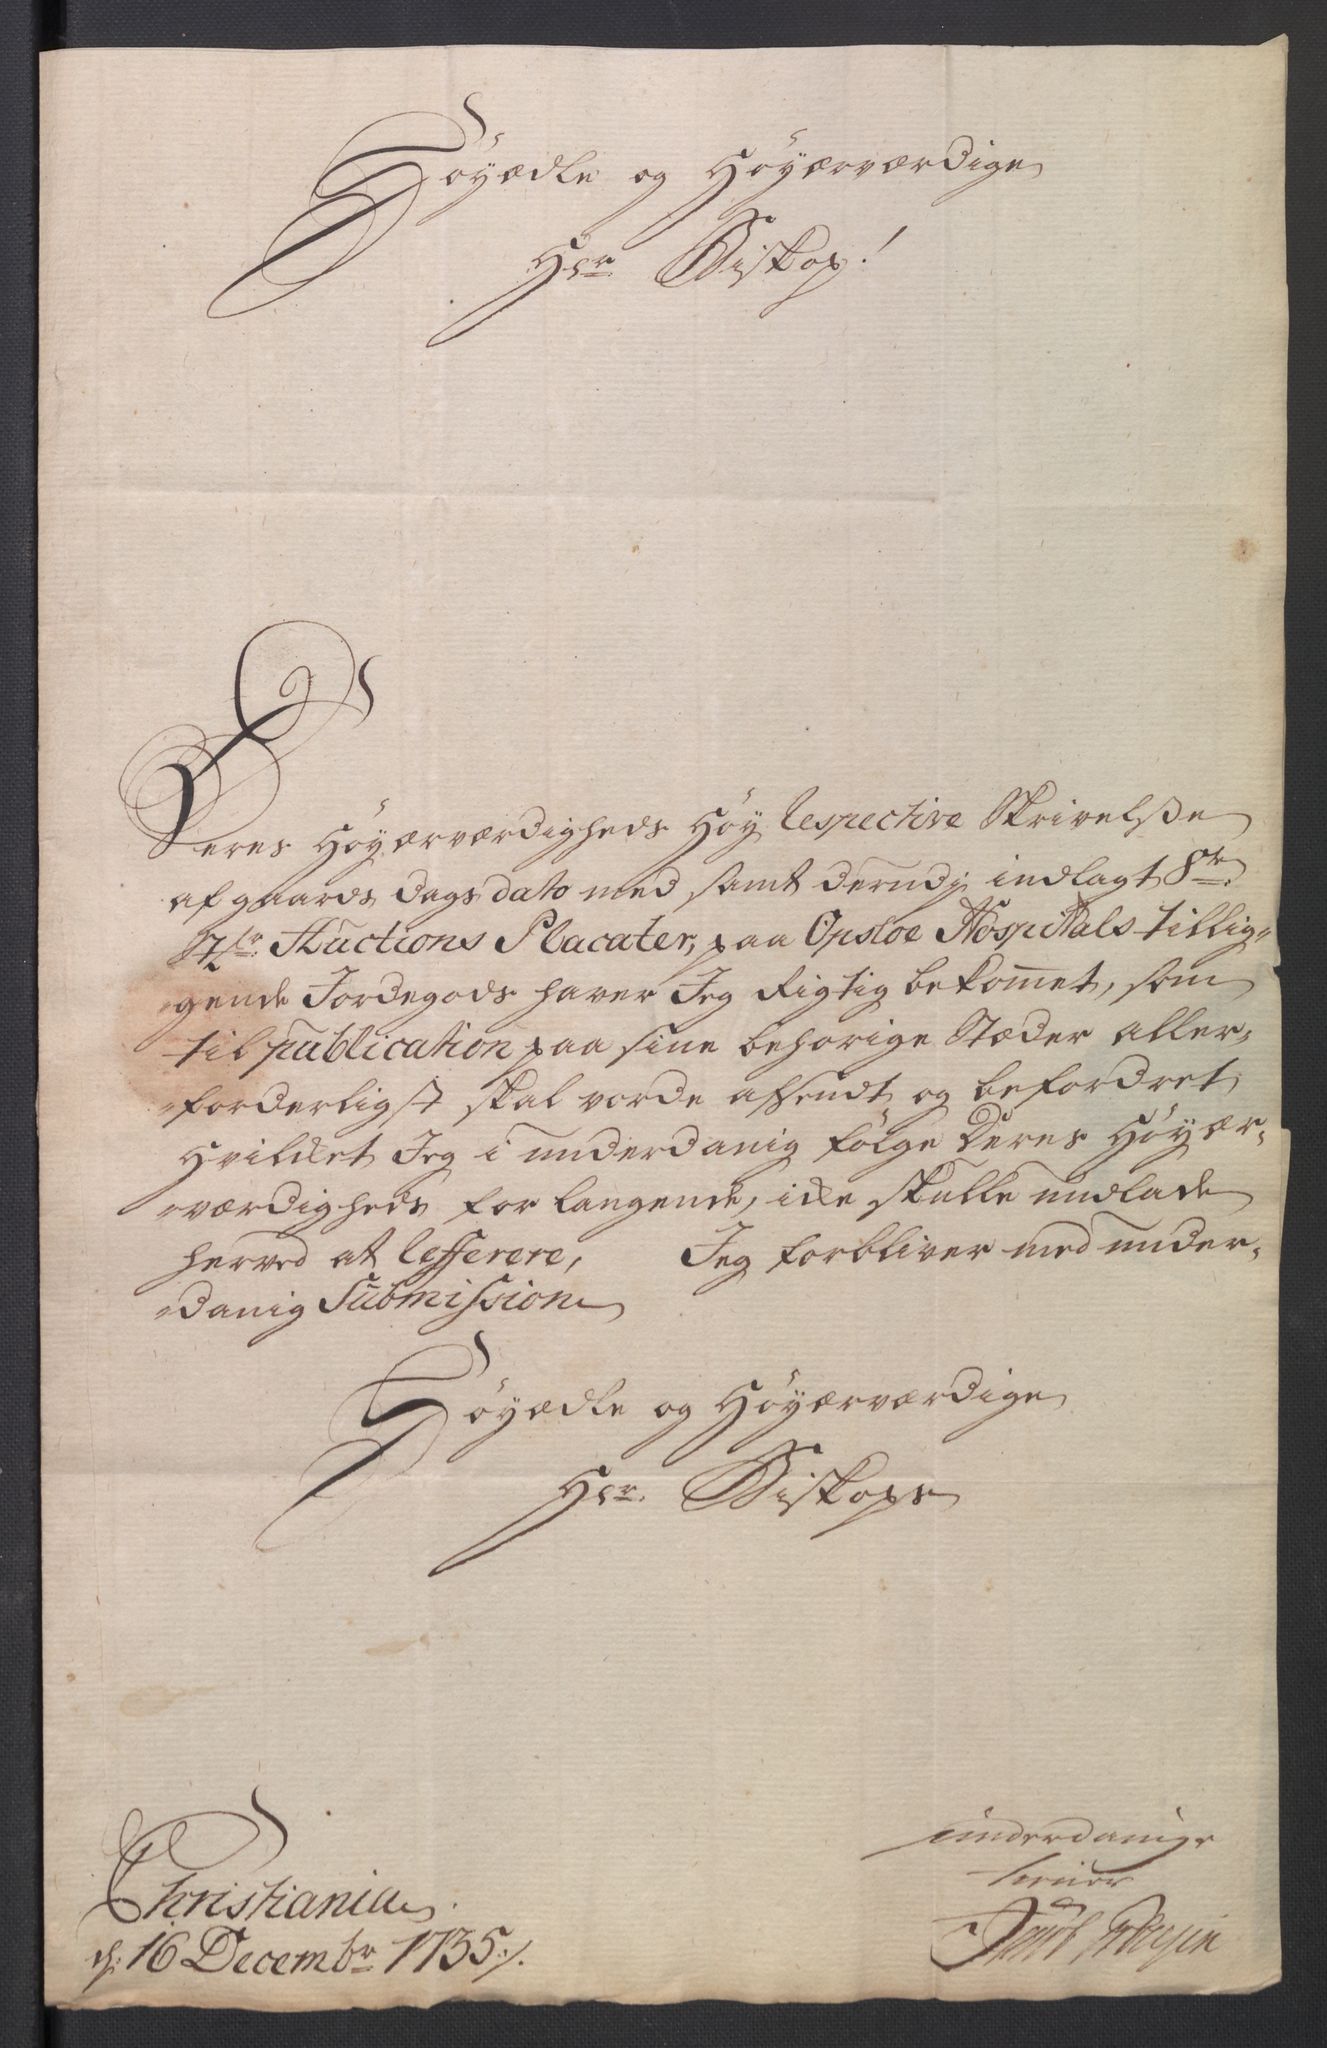 Höyædle og Höyærværdige
Hr. Biskop!
Deres Höyærværdigheds Höy Respective Skrivelsse
af gaards Dags dato med samt derudj indlagt 8te
Auctions Placater, paa Opsloe Hospitals tillig-
gende Jordegods haver Jeg Rigtig bekommet, som
til publication paa sine behörige Stæder aller-
forderligst skal vorde affsendt og befordret
Hvilcket Jeg i underdanig fölge Deres Höyær-
værdigheds forlangende, icke skulle undlade
herved at refferere, Jeg forbliver med under-
danig Submission
Höyædle og Höyærværdige
Hr. Biskops
Christiania
d: 16 Decembr 1735./.
underdanige
tiener